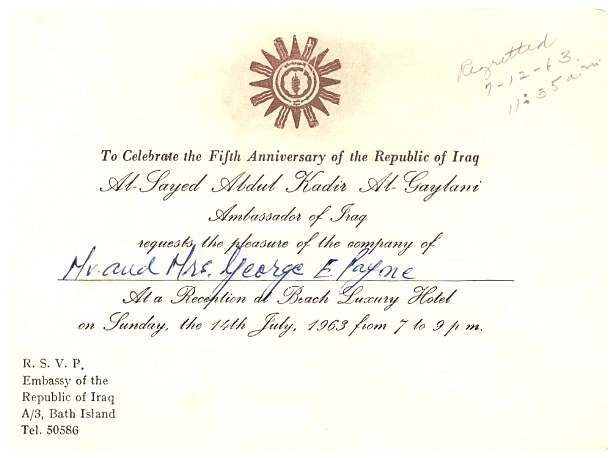 Regretted
7-12-63.
11:35 a.m.
To Celebrate the Fifth Anniversary of the Republic of Iraq
Al-Sayed Abdul Kadir Al-Gaylani
Ambassador of Iraq
requests the pleasure of the company of
Mr. and Mrs. George E. Payne
At a Reception at Beach Luxury Hotel
on Sunday, the 14th July, 1963 from 7 to 9 p m.
R. S. V. P.
Embassy of the
Republic of Iraq
A/3, Bath Island
Tel. 50586